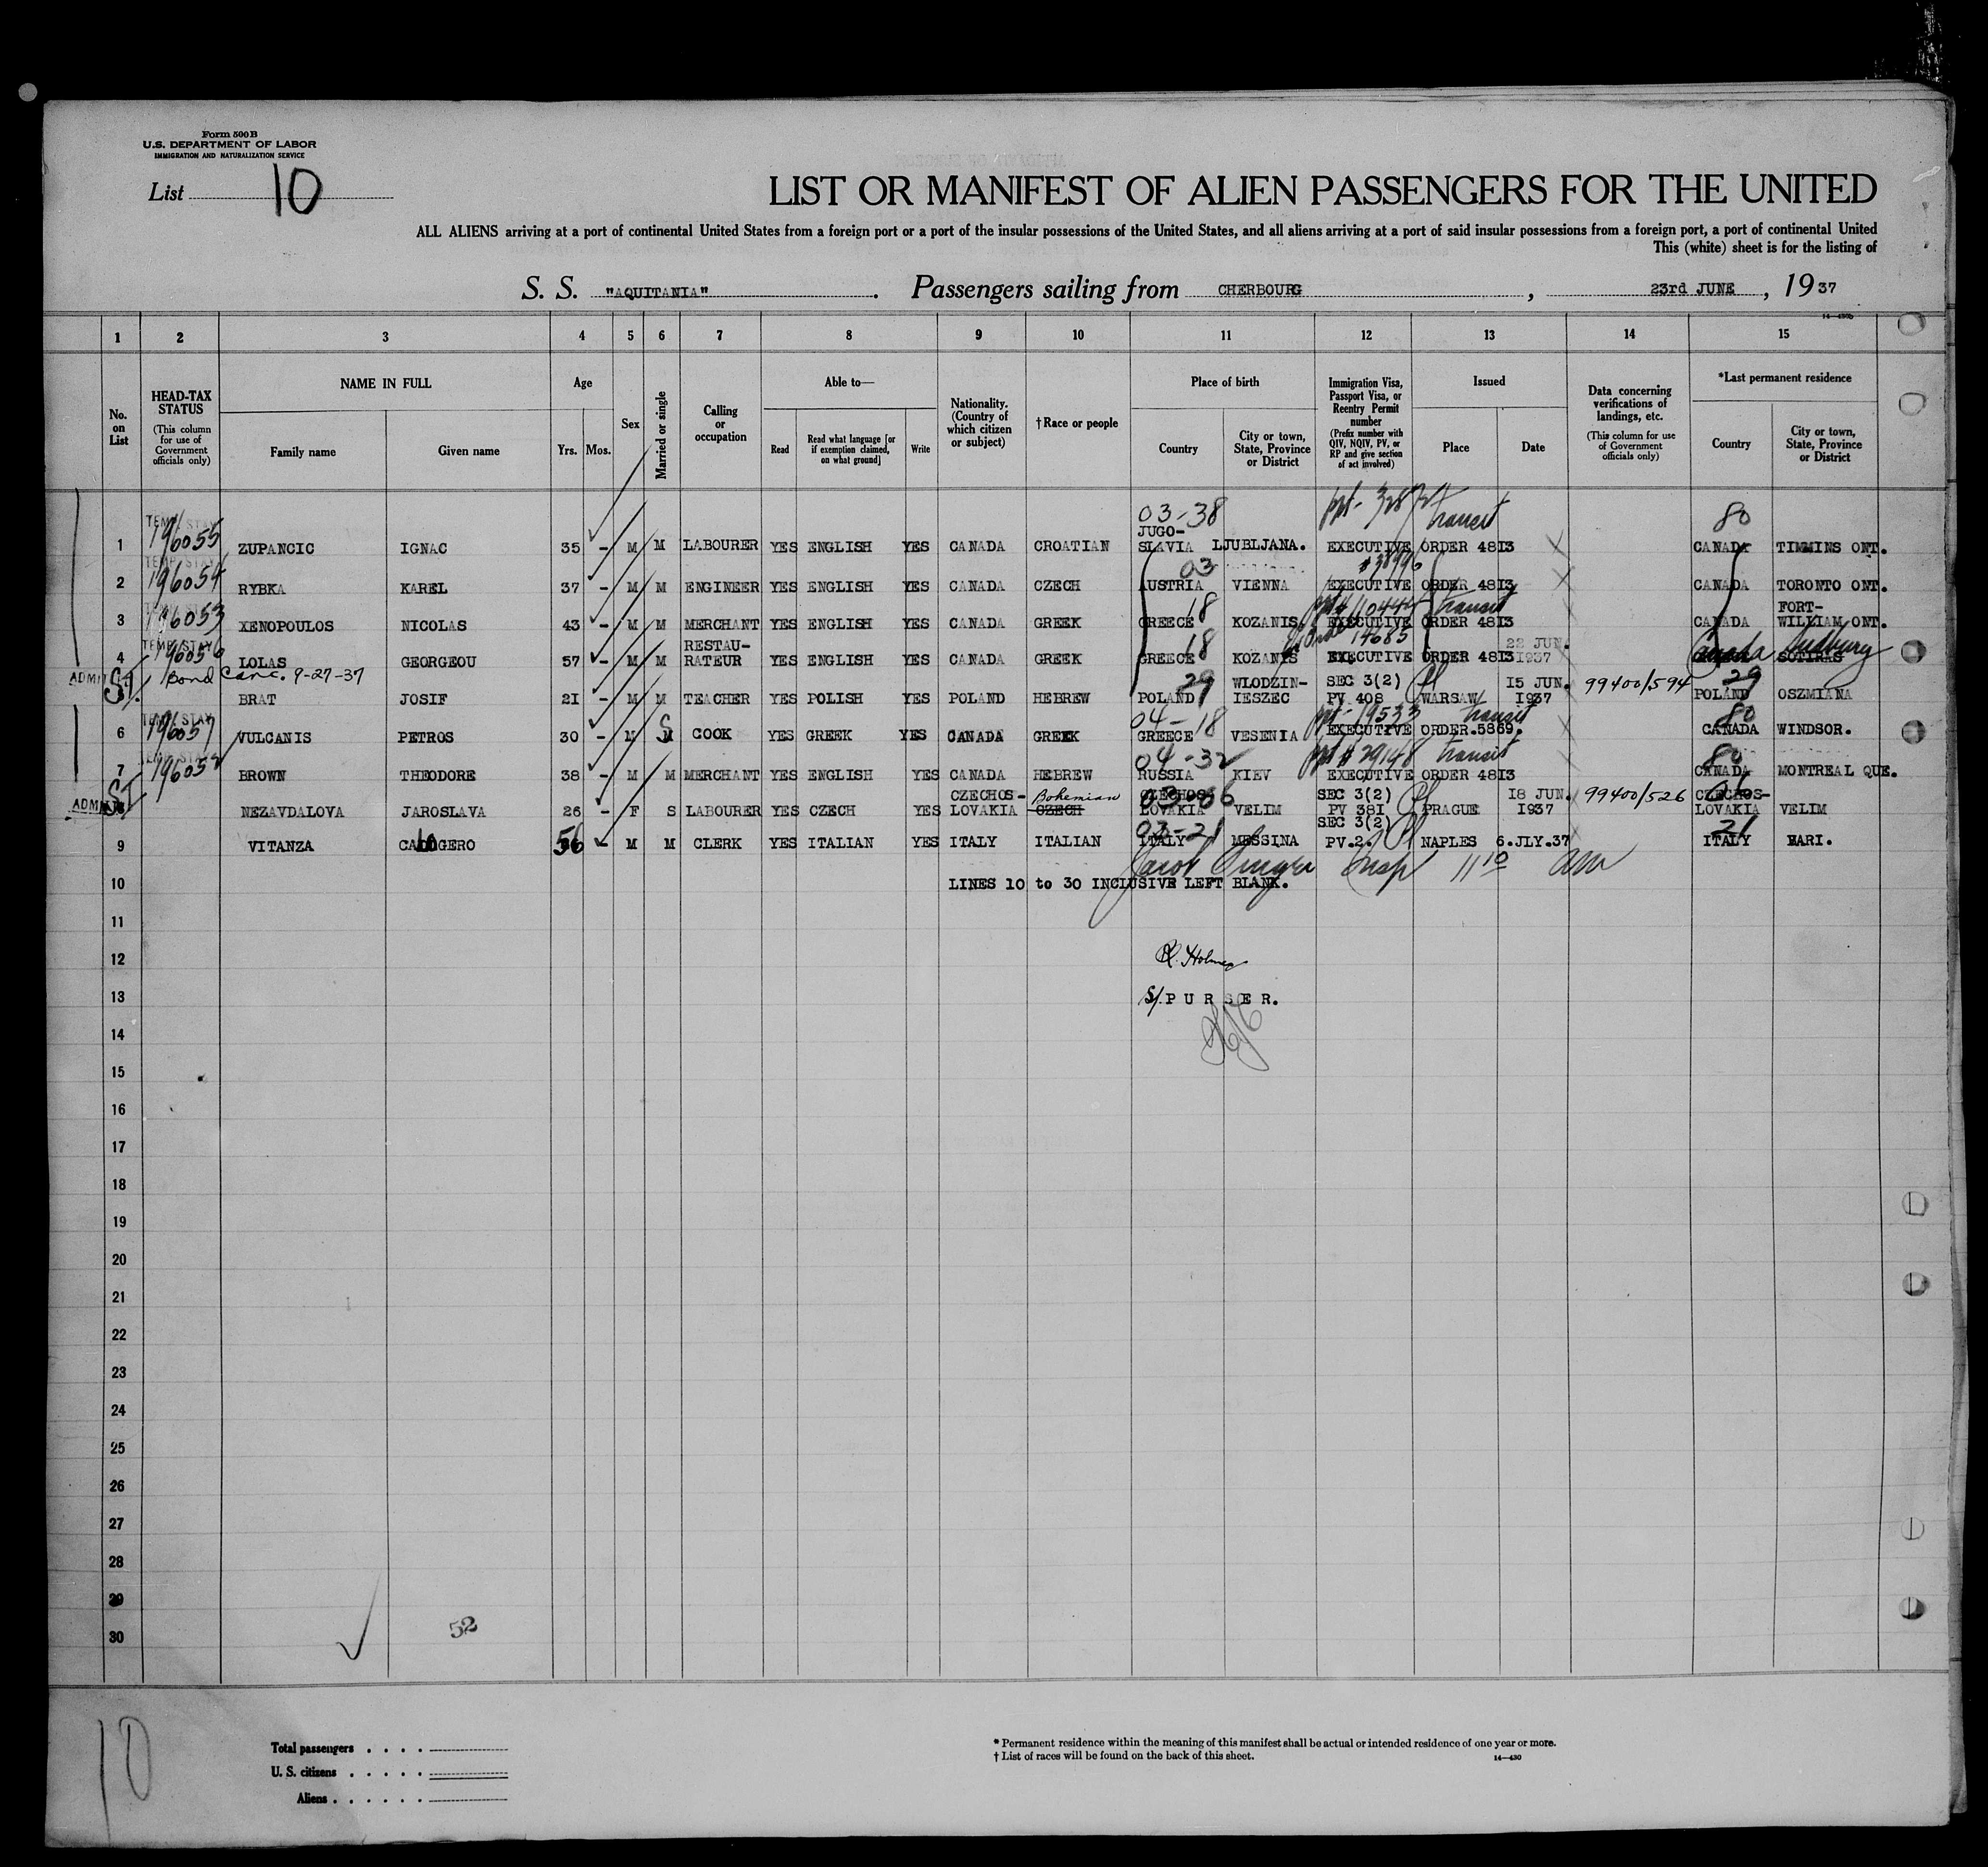 Form 500 B
U.S. DEPARTMENT OF LABOR
IMMIGRATION AND NATURALIZATION SERVICE
List 10
LIST OR MANIFEST OF ALIEN PASSENGERS FOR THE UNITED
ALL ALIENS arriving at a port of continental United States from a foreign port or a port of the insular possessions of the United States, and all aliens arriving at a port of said insular possessions from a foreign port, a port of continental United
This (white) sheet is for the listing of
S. S. "AQUITANIA". Passengers sailing from CHERBOURG, 23rd JUNE, 1937
1 2 3 4 5 6 7 8 9 10 11 12 13 14 15
No. on List
HEAD-TAX STATUS (This column for use of Government officials only)
NAME IN FULL
Family name Given name
Age
Yrs. Mos.
Sex
Married or single
Calling or occupation
Able to—
Read Read what language [or if exemption claimed, on what ground] Write
Nationality. (Country of which citizen or subject)
†Race or people
Place of birth
Country City or town, State, Province or District
Immigration Visa, Passport Visa, or Reentry Permit number (Prefix number with QIV, NQIV, PV, or RP and give section of act involved)
Issued
Place Date
Data concerning verifications of landings, etc. (This column for use of Government officials only)
*Last permanent residence
Country City or town, State, Province or District
03-38 transit 80
1 TEMP. STAY 196055 ZUPANCIC IGNAC 35 - M M LABOURER YES ENGLISH YES CANADA CROATIAN JUGO-SLAVIA LJUBLJANA. EXECUTIVE ORDER 4813 CANADA TIMMINS ONT.
2 TEMP. STAY 196054 RYBKA KAREL 37 - M M ENGINEER YES ENGLISH YES CANADA CZECH 03 AUSTRIA VIENNA EXECUTIVE ORDER 4813 CANADA TORONTO ONT.
3 196053 XENOPOULOS NICOLAS 43 - M M MERCHANT YES ENGLISH YES CANADA GREEK 18 GREECE KOZANIS. transit EXECUTIVE ORDER 4813 CANADA FORT-WILLIAM ONT.
4 TEMP. STAY 196056 LOLAS GEORGEOU 57 - M M RESTAU-RATEUR YES ENGLISH YES CANADA GREEK 18 GREECE KOZANIS 14085 EXECUTIVE ORDER 4813 22 JUN. 1937 Canada Sudbury SOTIRAS
ADMIT SI Bond Canc. 9-27-37
BRAT JOSIF 21 - M M TEACHER YES POLISH YES POLAND HEBREW 29 POLAND WLODZIN-IESZEC SEC 3(2) PV 408 WARSAW 15 JUN. 1937 99400/594 29 POLAND OSZMIANA
6 TEMP. STAY 196057 VULCANIS PETROS 30 - M S M COOK YES GREEK YES CANADA GREEK 04-18 GREECE VESENIA ppt- 19533 transit EXECUTIVE ORDER.5869. 80 CANADA WINDSOR.
7 196052 BROWN THEODORE 38 - M M MERCHANT YES ENGLISH YES CANADA HEBREW 04-32 RUSSIA KIEV ppt # 29148 transit EXECUTIVE ORDER 4813 80 CANADA MONTREAL QUE.
ADMIT SI NEZAVDALOVA JAROSLAVA 26 - F S LABOURER YES CZECH YES CZECHOS-LOVAKIA Bohemian CZECH 03-06 CZECHOS-LOVAKIA VELIM SEC 3(2) PV 381 PRAGUE 18 JUN. 1937 99400/526 06 CZECHOS-LOVAKIA VELIM
9 VITANZA CALOGERO 56 - M M CLERK YES ITALIAN YES ITALY ITALIAN 03-21 ITALY MESSINA SEC 3(2) PV.2. NAPLES 6.JLY.37 21 ITALY BARI.
Insp 11 10 am
10 LINES 10 to 30 INCLUSIVE LEFT BLANK.
11
12 R. Holmes
13 S/ PURSER.
14
15
16
17
18
19
20
21
22
23
24
25
26
27
28
29
30
52
10
Total passengers
U. S. citizens
Aliens
* Permanent residence within the meaning of this manifest shall be actual or intended residence of one year or more.
† List of races will be found on the back of this sheet.
14—430